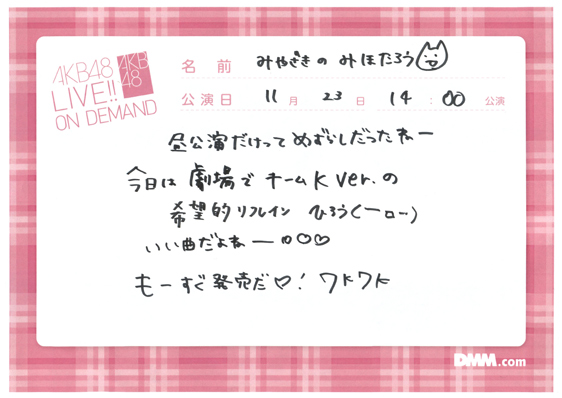 AKB48
LIVE!!
ON DEMAND
AKB
48
名前 みやざきの みほたろう
公演日 11月 23日 14:00 公演
昼公演だけってめずらしだったねー
今日は劇場でチームK ver.の
希望的リフレイン ひろう(一ロ…)
いい曲だよねー
もーすぐ発売だ♡! ワトワト
DMM.com